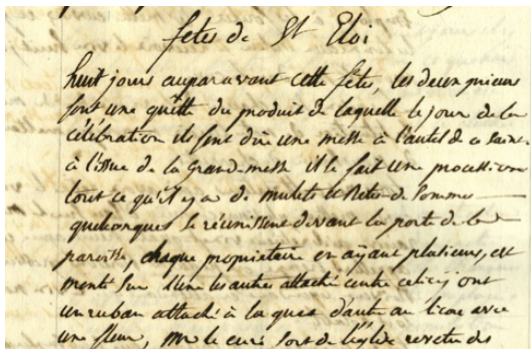 fetes de St Eloi
huit jours auparavant cette fêtes, les deux prieurs
font une quette du produit de laquelle le jour de la
célébration ils font dire une messe à l'autel de ce saint
à l'issue de la grande messe il se fait une procession
tout ce qu'il y a de mulets et Betes de Sommes
quelconques se réunissent devant la porte de la
paroisse, chaque propriétaire en ayant plusieurs, est
monté sur l'une les autres attaché contre celicy ont
un ruban attaché à la queue d'autre au licou avec
une fleur, mr le curé sort de l'église revetu des